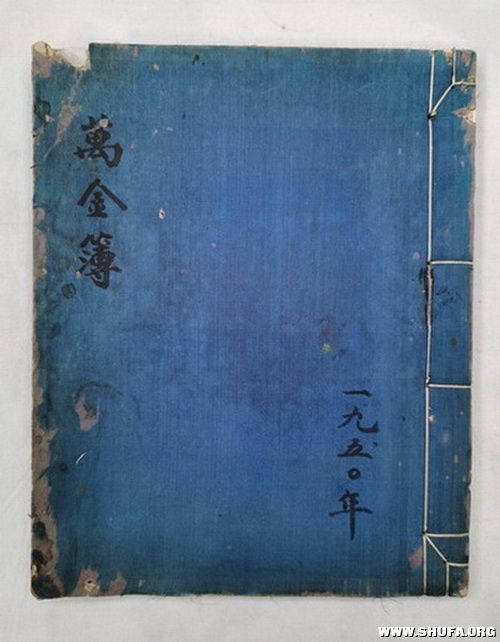 萬金簿
一九五〇年
WWW.SHUFA.ORG